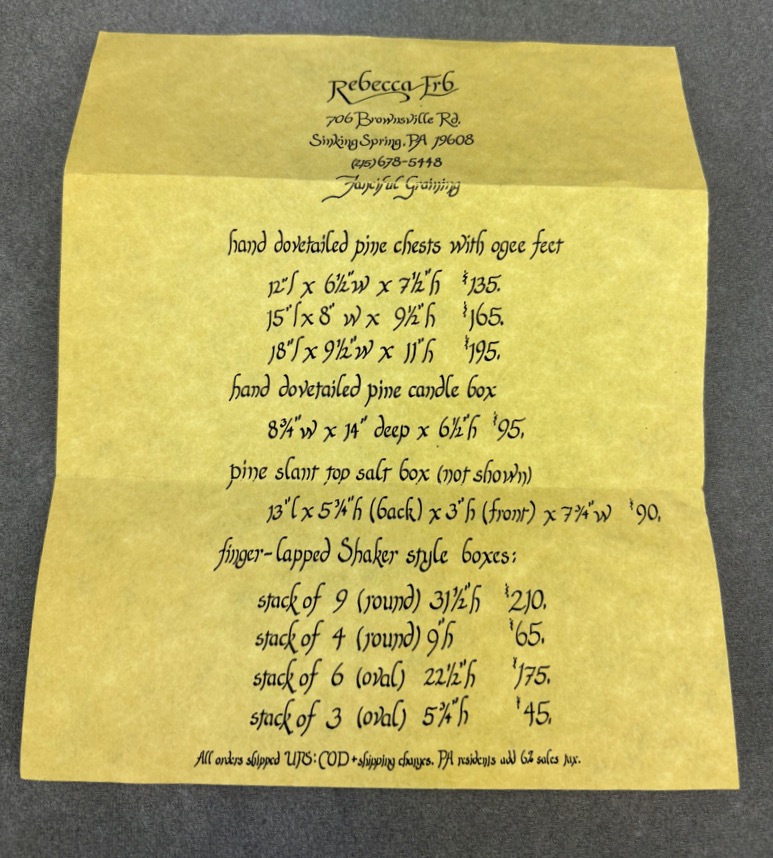 Rebecca Erb
706 Brownsville Rd.
Sinking Spring, PA 19608
(215) 678-5448
Fanciful Graining
hand dovetailed pine chests with ogee feet
12"l x 6½"w x 7½"h $135.
15"l x 8" w x 9½"h $165.
18"l x 9½"w x 11"h $195.
hand dovetailed pine candle box
8¾"w x 14" deep x 6½"h $95.
pine slant top salt box (not shown)
13"l x 5¾"h (back) x 3"h (front) x 7¾"w $90.
finger-lapped Shaker style boxes:
stack of 9 (round) 31½"h $210.
stack of 4 (round) 9"h $65.
stack of 6 (oval) 22½"h $175.
stack of 3 (oval) 5¾"h $45.
All orders shipped UPS: COD + shipping charges. PA residents add 6% sales tax.